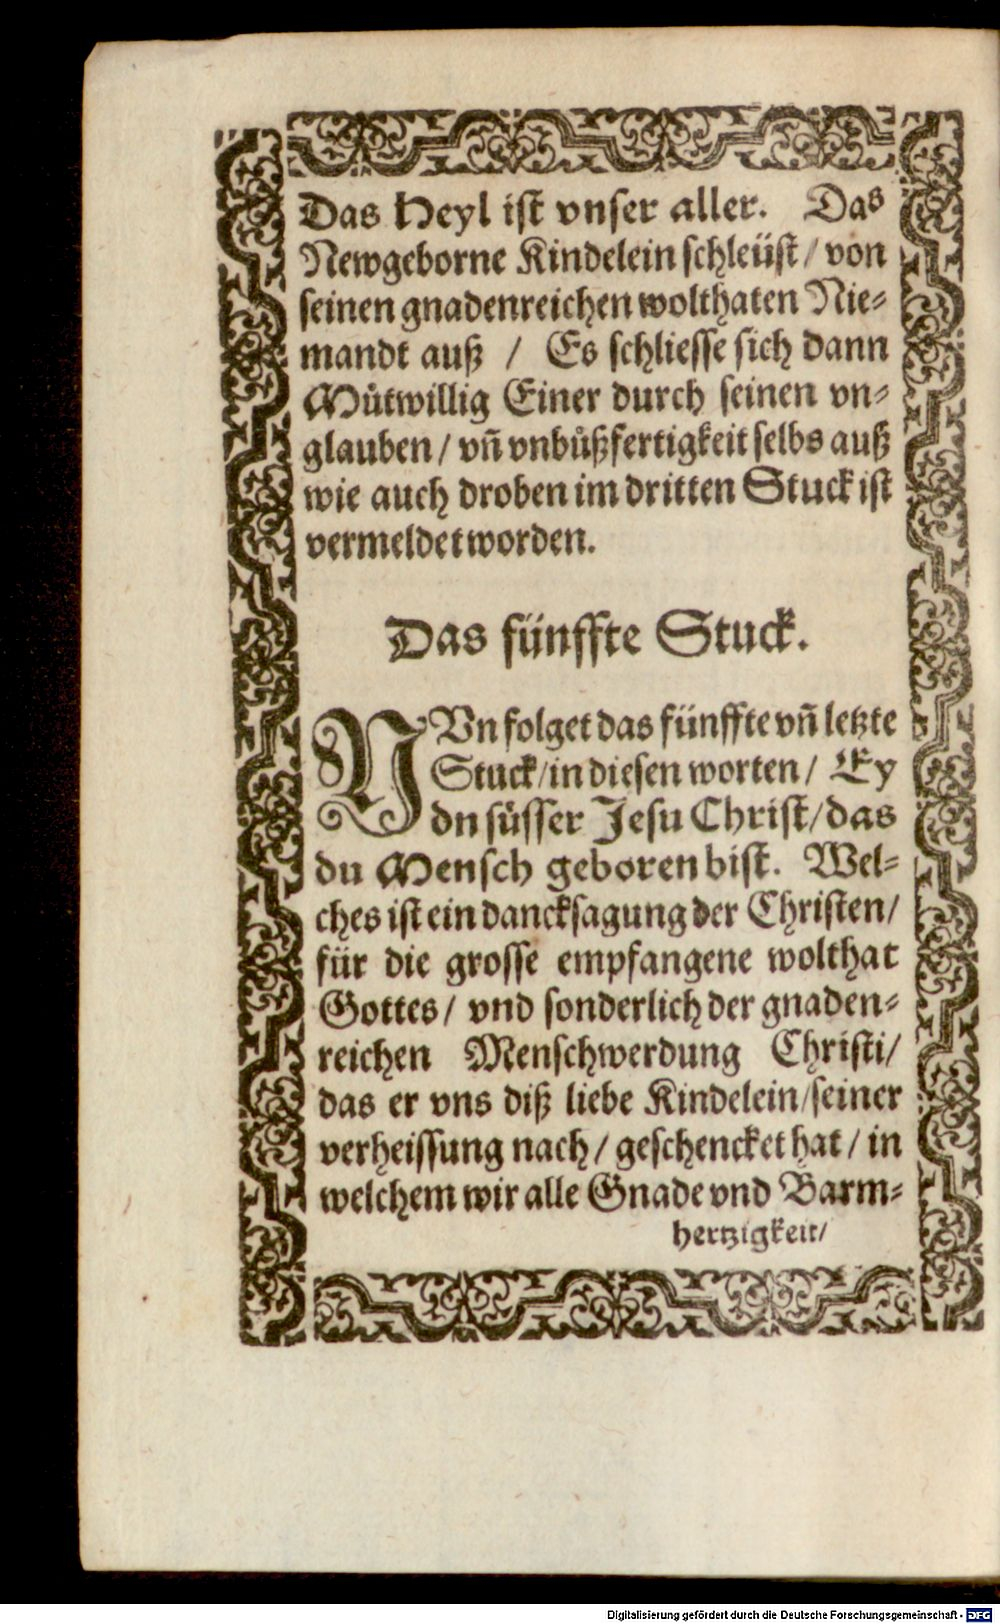 Das Heyl ist vnser aller. Das
Newgeborne Kindelein schleüst / von
seinen gnadenreichen wolthaten Nie⸗
mandt auß / Es schliesse sich dann
Můtwillig Einer durch seinen vn⸗
glauben / vñ vnbůßfertigkeit selbs auß
wie auch droben im dritten Stuck ist
vermeldet worden.
Das fünffte Stuck.
NVn folget das fünffte vñ letzte
Stuck / in diesen worten / Ey
dn süsser Jesu Christ / das
du Mensch geboren bist. Wel⸗
ches ist ein dancksagung der Christen /
für die grosse empfangene wolthat
Gottes / vnd sonderlich der gnaden⸗
reichen Menschwerdung Christi /
das er vns diß liebe Kindelein / seiner
verheissung nach / geschencket hat / in
welchem wir alle Gnade vnd Barm⸗
hertzigkeit /
Digitalisierung gefördert durch die Deutsche Forschungsgemeinschaft - DFG